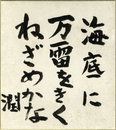 海底に
万雷をきく
ねざめかな
潤